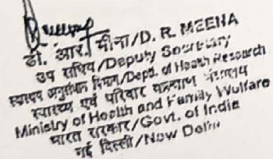 डॉ. आर. मीना/D. R. MEENA
उप सचिव/Deputy Secretary
स्वास्थ्य अनुसंधान विभाग/Deptt. of Health Research
स्वास्थ्य एवं परिवार कल्याण मंत्रालय
Ministry of Health and Family Welfare
भारत सरकार/Govt. of India
नई दिल्ली/New Delhi